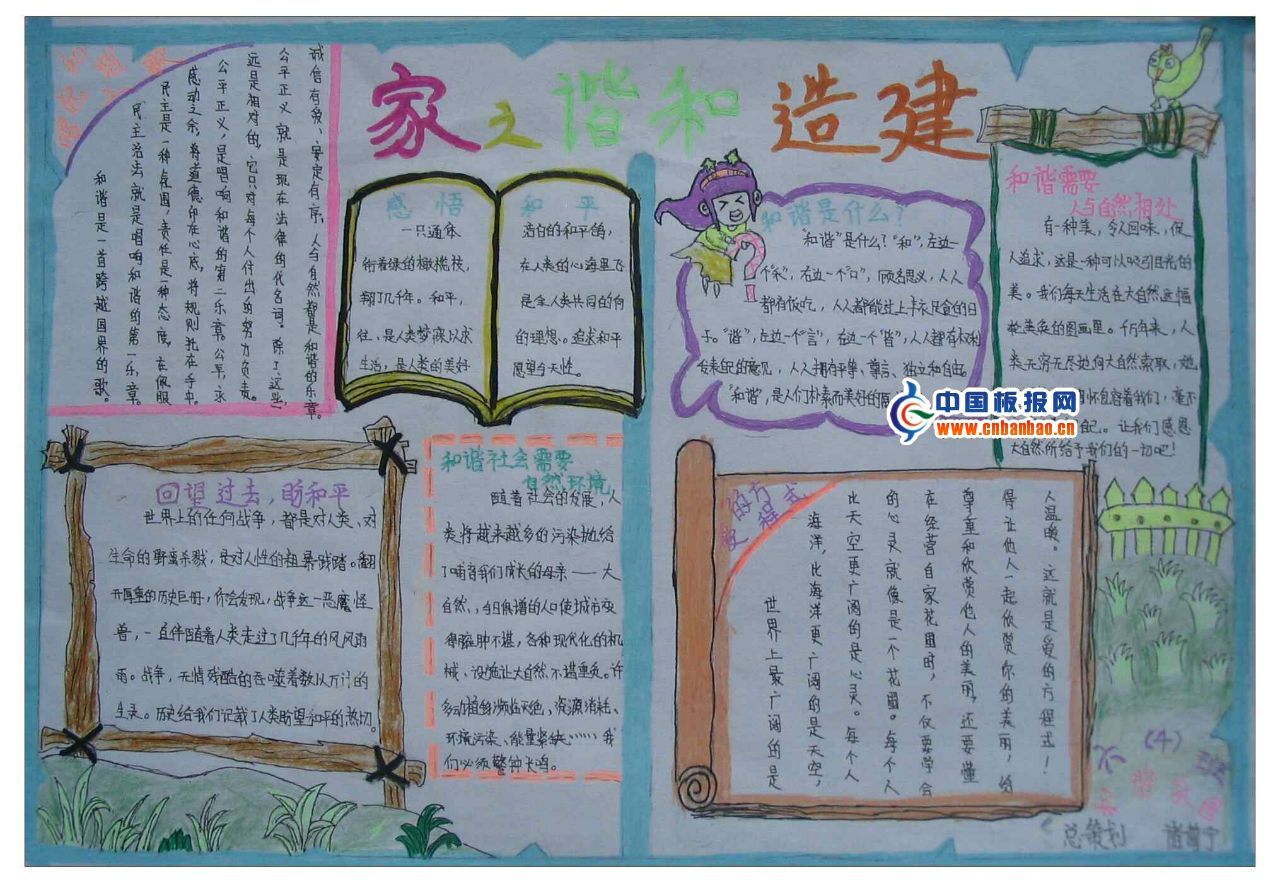 家之谐和造建
唱起和谐之歌
和谐是一首跨越国界的歌。
民主法治就是唱响和谐的第一乐章。
民主是一种氛围,责任是一种态度,在佩服
感动之余,将道德印在心底,将规则扎在手中。
公平正义,是唱响和谐的第二乐章。公平,永
远是相对的,它只对每个人付出的努力负责。
公平正义就是现在法律的代名词。除了这些,
诚信有爱、安定有序、人与自然都是和谐的乐章。
感悟 和平
一只通体 洁白的和平鸽,
衔着绿的橄榄枝, 在人类的心海里飞
翔了几千年。和平, 是全人类共同的向
往,是人类梦寐以求 的理想。追求和平
生活,是人类的美好 愿望与天性。
和谐是什么?
“和谐”是什么?“和”,左边一
个“禾”,右边一个“口”,顾名思义,人人
都有饭吃,人人都能过上丰衣足食的日
子。“谐”,左边一个“言”,右边一个“皆”,人人都有权利
发表自己的意见,人人拥有平等、尊言、独立和自由
“和谐”,是人们朴素而美好的愿
和谐需要
人与自然相处
有一种美,令人回味,促
人追求,这是一种可以吸引目光的
美。我们每天生活在大自然这幅
美的图画里。千万年来,人
类无穷无尽地向大自然索取,她
怀包容着我们,毫不
自己。让我们感恩
大自然所给予我们的一切吧!
中国板报网
www.cnbanbao.cn
回望过去,盼和平
世界上的任何战争,都是对人类、对
生命的野蛮杀戮,是对人性的粗暴践踏。翻
开厚重的历史巨册,你会发现,战争这一恶魔怪
兽,一直伴随着人类走过了几千年的风风雨
雨。战争,无情残酷的吞噬着数以万计的
生灵。历史给我们记载了人类盼望和平的热切。
和谐社会需要
自然环境
随着社会的发展,人
类将越来越多的污染抛给
了哺育我们成长的母亲——大
自然、,与日俱增的人口使城市变
得臃肿不堪,各种现代化的机
械、设施让大自然不堪重负。许
多动植物濒临灭绝、资源消耗、
环境污染、能量紧缺……我
们必须警钟长鸣。
爱的方程式
世界上最广阔的是
海洋,比海洋更广阔的是天空,
比天空更广阔的是心灵。每个人
的心灵就像是一个花园。每个人
在经营自家花园时,不仅要学会
尊重和欣赏他人的美丽,还要懂
得让他人一起欣赏你的美丽,给
人温暖。这就是爱的方程式!
六(4)班
和谐家园
总策划